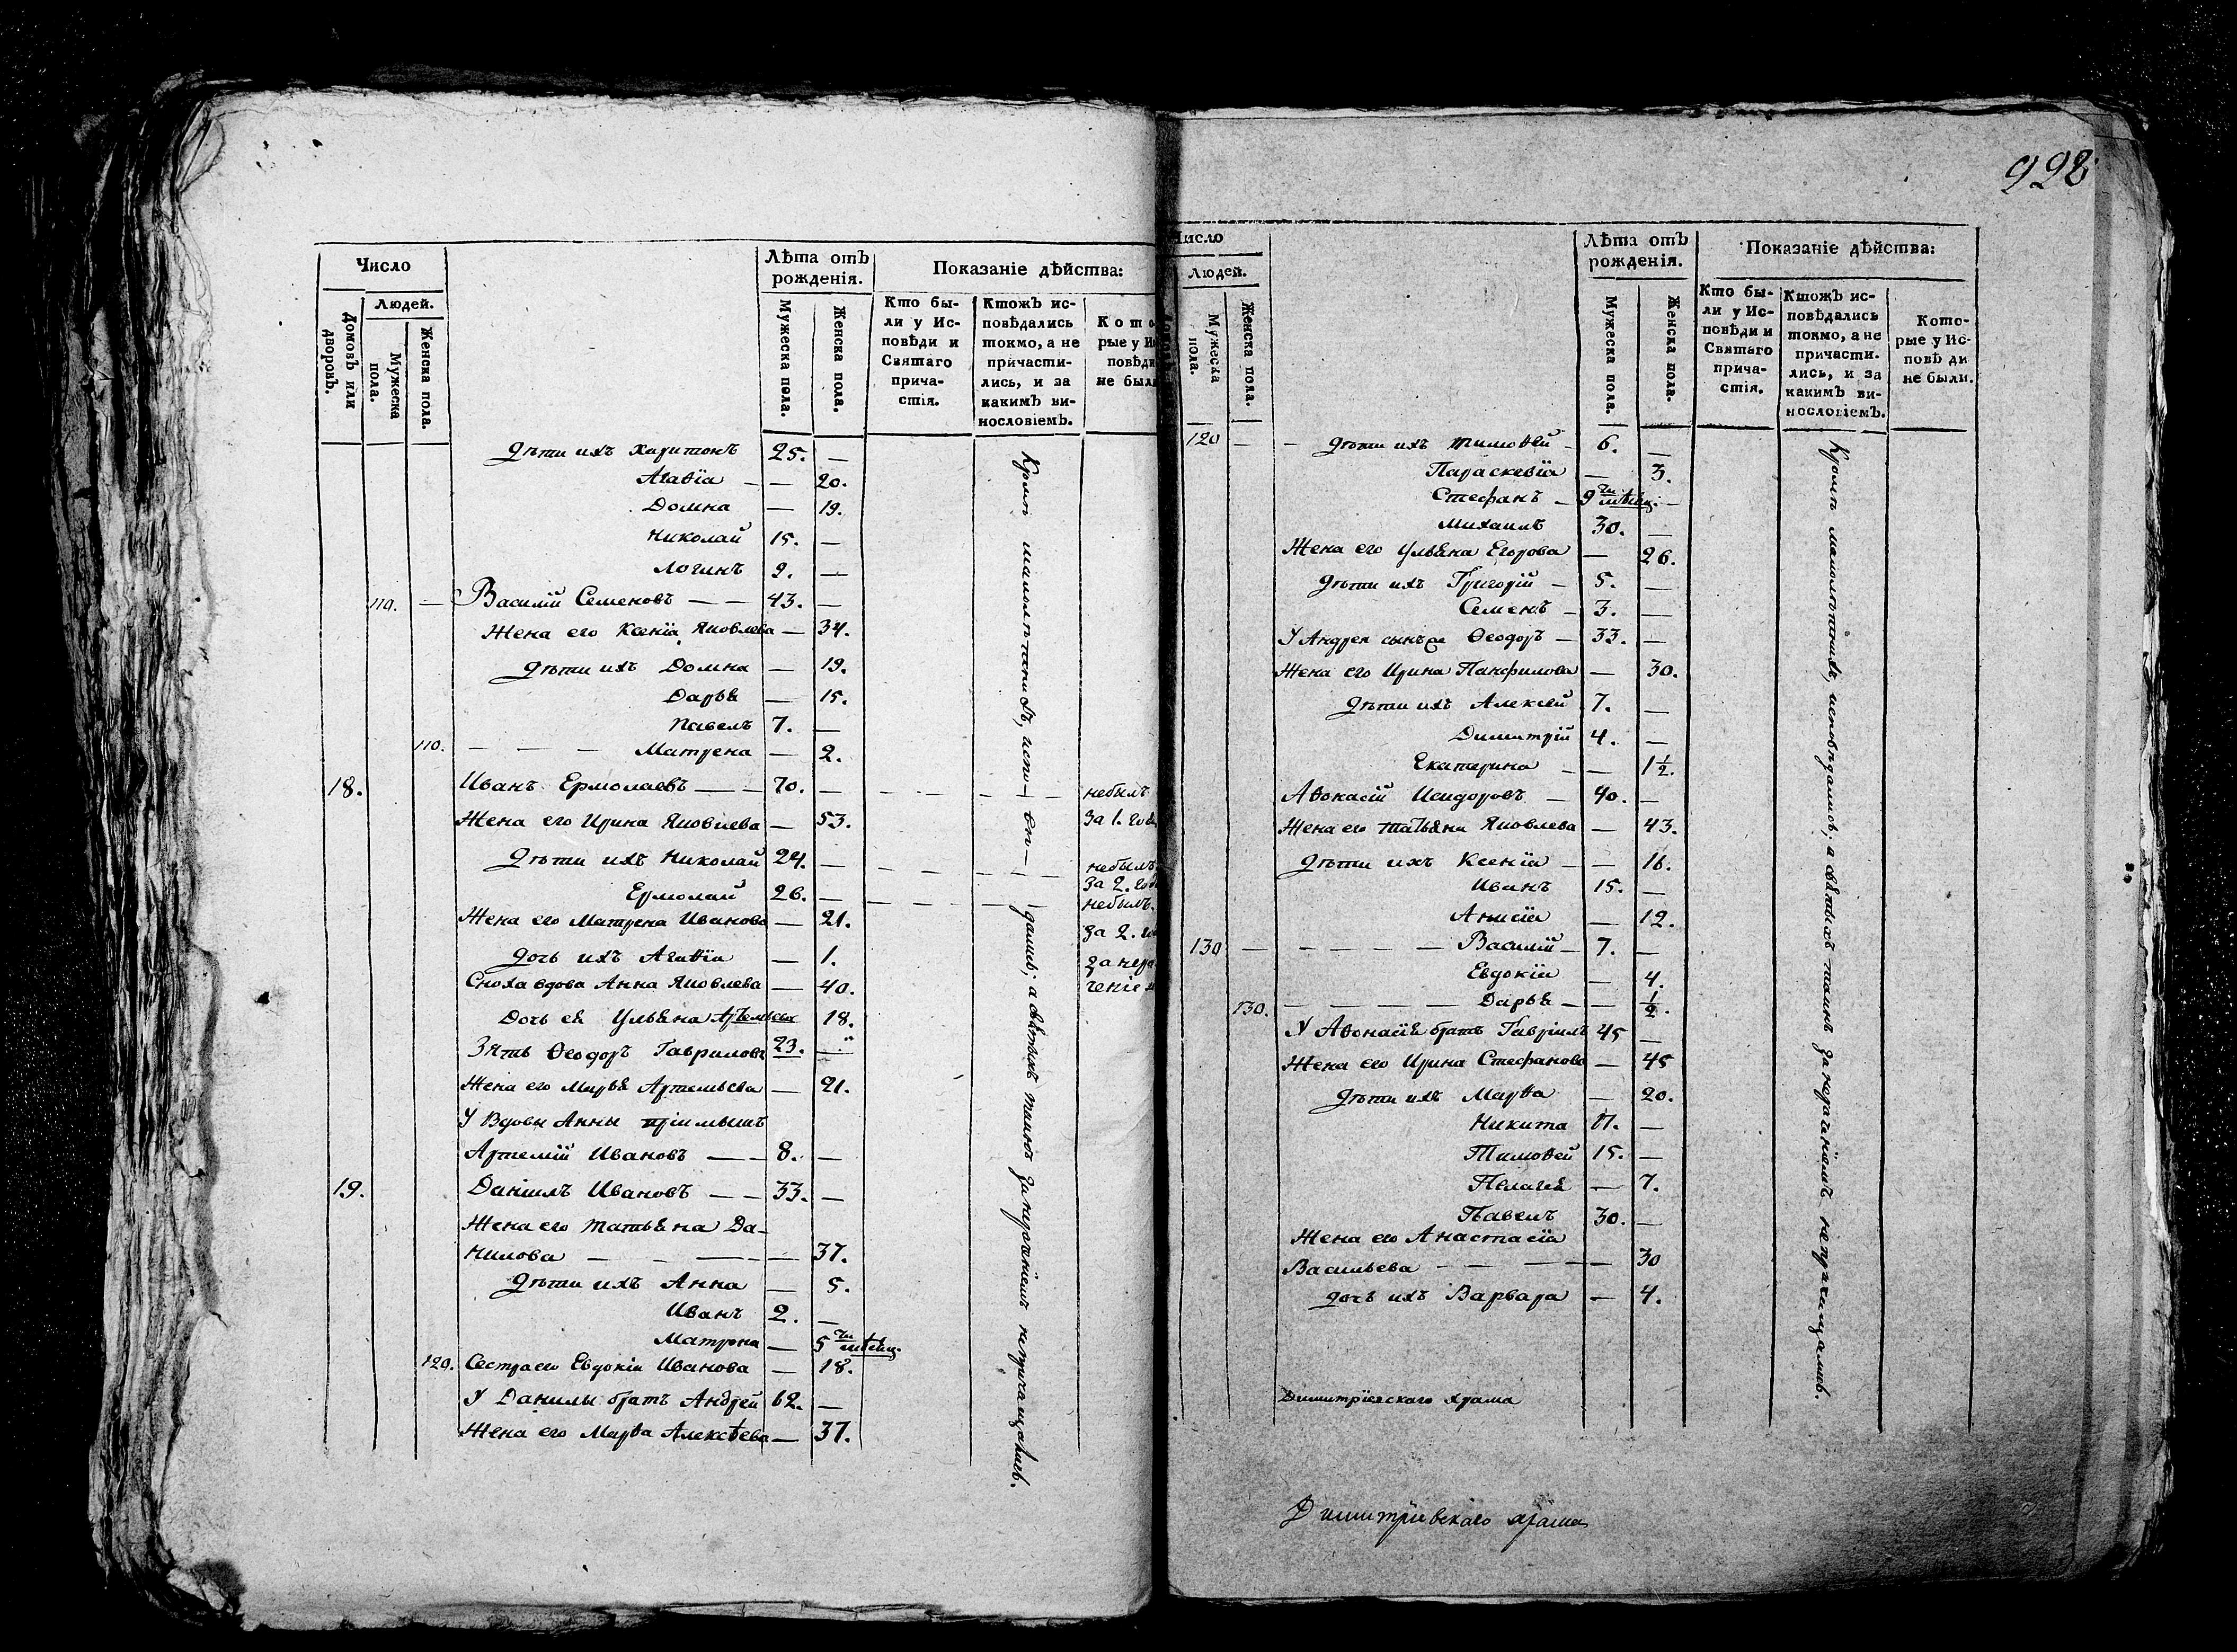 Число
Людей.
Домовъ или дворовъ.
Мужеска пола.
Женска пола.
Лѣта отъ рожденія.
Мужеска пола.
Женска пола.
Показаніе дѣйства:
Кто были у Исповѣди и Святаго причастія.
Ктожъ исповѣдались токмо, а не причастились, и за какимъ винословіемъ.
Кото
рые у И
повѣди
не были
дѣти ихъ Харитонъ 25. —
Агаѳіа — — 20.
Домна — 19.
Николай 15. —
Логинъ 2. —
110. — Василій Семеновъ — — 43. —
Жена его Ксенія Яковлева — 34.
дѣти ихъ Домна — 19.
Дарья — 15.
Павелъ 7. —
110. — — — Матрена — 2.
18. Иванъ Ермолаевъ — — 70. — небылъ
Жена его Ирина Яковлева — 53. За 1. год
дѣти ихъ Николай 24. — небылъ
За 2. год
Ермолай 26. — небылъ.
Жена его Матрена Иванова — 21. За 2. го
дочь ихъ Агаѳіа — 1. За нера
Сноха вдова Анна Яковлева — 40. ченіем
Дочь ея Ульяна Артемьева 18.
Зять Ѳеодоръ Гавриловъ 23. —
Жена его Марья Артемьева — 21.
У Вдовы Анны пріимышъ
Артемій Ивановъ — — 8. —
19. Даніилъ Ивановъ — — 33. —
Жена его Татьяна Да-
нилова — — — — 37.
дѣти ихъ Анна — 5.
Иванъ 2. —
Матрона — 5 ти мѣсяц.
120. Сестра его Евдокіа Иванова — 18.
У Данилы братъ Андрей 62. —
Жена его Марѳа Алексѣева — 37.
Кромѣ малолѣтнихъ, исповѣдались; а святыхъ таинъ за нераченіемъ непричащались.
998
Число
Людей.
Мужеска пола.
Женска пола.
Лѣта отъ рожденія.
Мужеска пола.
Женска пола.
Показаніе дѣйства:
Кто были у Исповѣди и Святаго причастія.
Ктожъ исповѣдались токмо, а не причастились, и за какимъ винословіемъ.
Которые у Исповѣди не были.
120 — — дѣти ихъ Тимоѳей — 6. —
Параскевіа — 3.
Стефанъ — 9 ти мѣсяц. —
Михаилъ 30. —
Жена его Ульяна Егорова — 26.
дѣти ихъ Григорій — 5. —
Семенъ — 3. —
У Андрея сынъ Ѳеодоръ — 33. —
Жена его Ирина Панфилова — 30.
дѣти ихъ Алексѣй 7. —
Димитрій 4. —
Екатерина — — 1 1/2.
Аѳонасій Исидоровъ — 40. —
Жена его Татьяна Яковлева — 43.
дѣти ихъ Ксеніа — — 16.
Иванъ 15. —
Анисіа — 12.
130 — — — — — Василій — 7. —
Евдокіа — 4.
130. — — — — Дарья — — 1/2.
У Аѳонасія братъ Гавріилъ 45 —
Жена его Ирина Стефанова — 45
дѣти ихъ Марѳа — 20.
Никита 17. —
Тимоѳей 15. —
Пелагея — 7.
Павелъ 30. —
Жена его Анастасіа
Васильева — — — — 30
дочь ихъ Варвара — 4.
Кромѣ малолѣтнихъ, исповѣдались; а святыхъ таинъ за нераченіемъ непричащались.
Димитріевскаго храма
Димитріевскаго храма